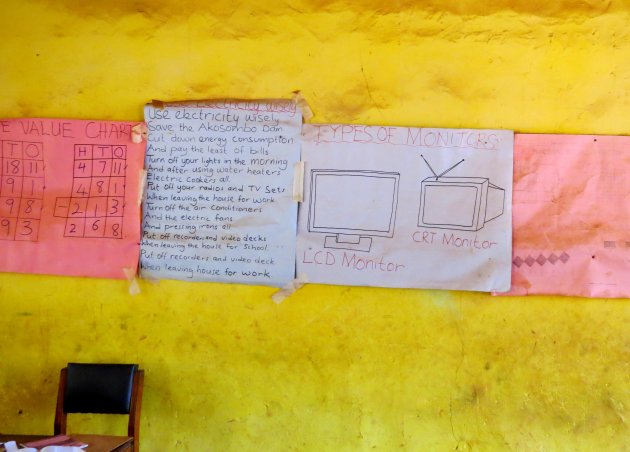 E VALUE CHART
T O
18 11
9 1
9 8
9 3
H T O
4 7 11
4 8 1
- 2 1 3
2 6 8
Electricity wisely
Use electricity wisely
Save the Akosombo Dam
Cut down energy consumption
And pay the least of bills
Turn off your lights in the morning
And after using water heaters
Electric cookers all
Put off your radios and TV Sets
When leaving the house for work
Turn off the air conditioners
And the electric fans
And pressing irons all
Put off recorders and video decks
When leaving the house for School
Put off recorders and video deck
When leaving house for work
TYPES OF MONITORS
LCD Monitor
CRT Monitor